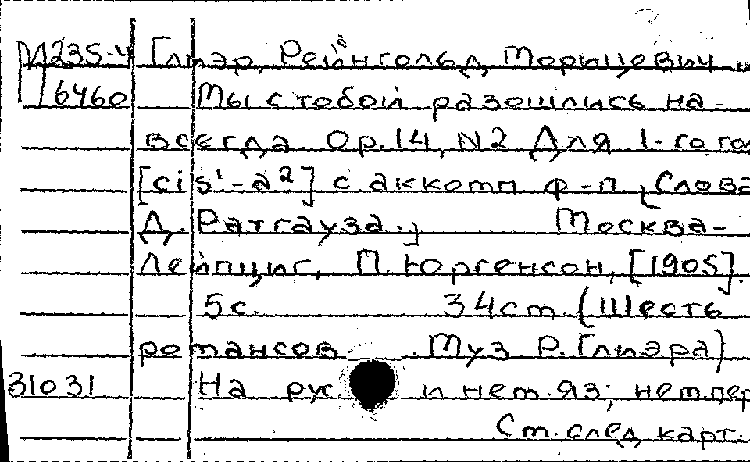 М235-4 Глиэр, Рейнгольд Морицевич
16460 Мы с тобой разошлись на-
всегда Op.14, N2 Для 1-го го
[cis¹-a²] с аккомп ф-п [Слова
Д. Ратгауза.] Москва-
Лейпциг, П. Юргенсон, [1905].
5с. 34cm. (Шесть
романсов. Муз Р. Глиэра)
31031 На рус и нем. яз; нем.пер
См. след карт.